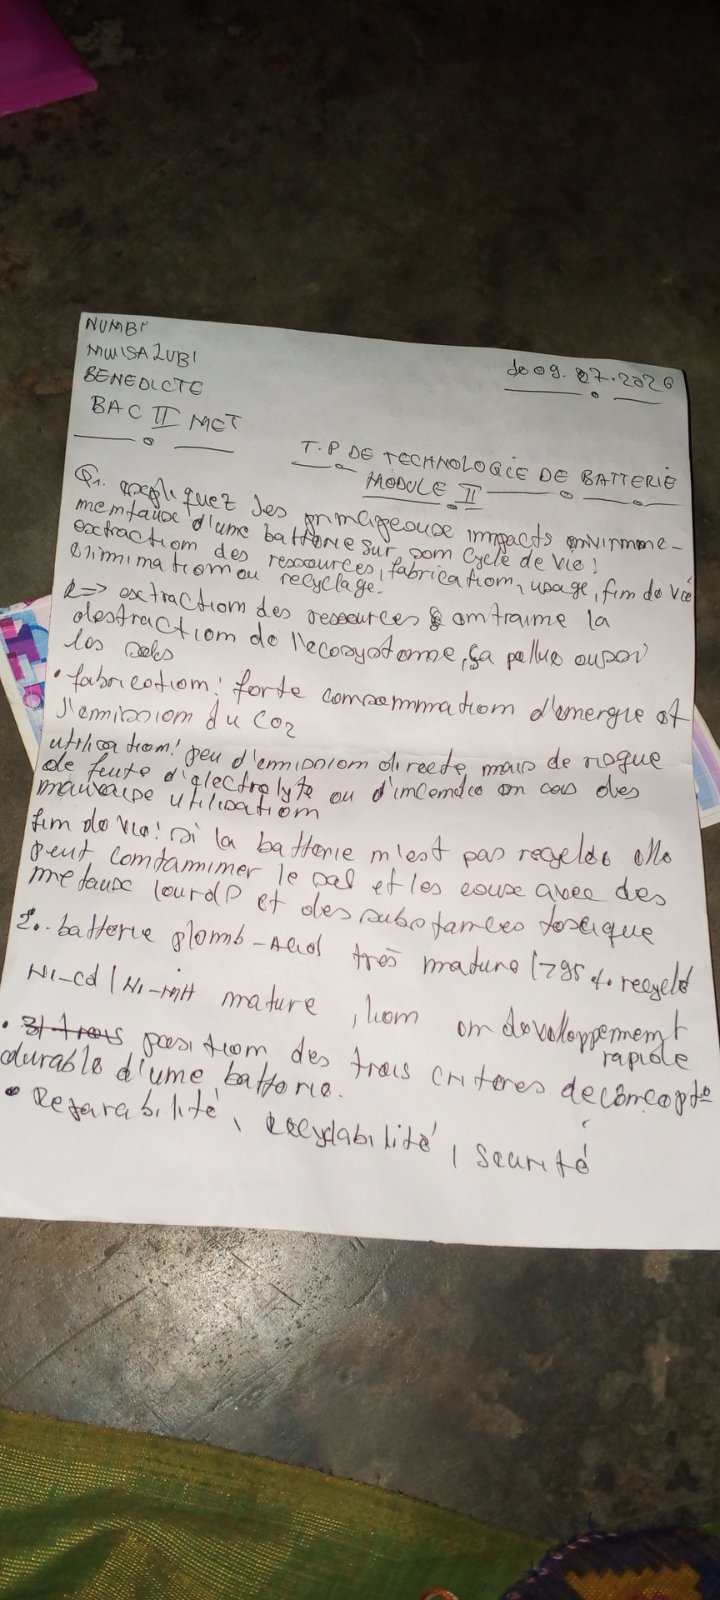 NUMBI
MWISA ZUBI
BENEDICTE
BAC II MET
do 09.07.2026
T.P DE TECHNOLOGIE DE BATTERIE
MODULE II
Q1. expliquez les principeaux impacts environne-
mentaux d'une batterie sur som cycle de vie:
extraction des ressources, fabrication, usage, fim de vie
elimination ou recyclage.
R => extraction des ressources entraime la
destraction de l'ecosysteme, ça pollue aussi
les sols
• fabrication: forte comsommation d'emergie et
l'emission du CO2
utilisation: peu d'emission directe mais de risque
de fuite d'electrolyte ou d'imcemdie en cas des
mauvaise utilisation
fim de vie: si la batterie m'est pas recyclée elle
peut comtamimer le sol et les eaux avec des
metaux lourds et des substances toxique
2.. batterie plomb-Acid très mature (>95% recyclé
Ni-cd / Ni-MH mature, liom om developpement
rapide
• position des trois criteres de comcept°
durable d'ume batterie.
• Reparabilité, recyclabilité, securité